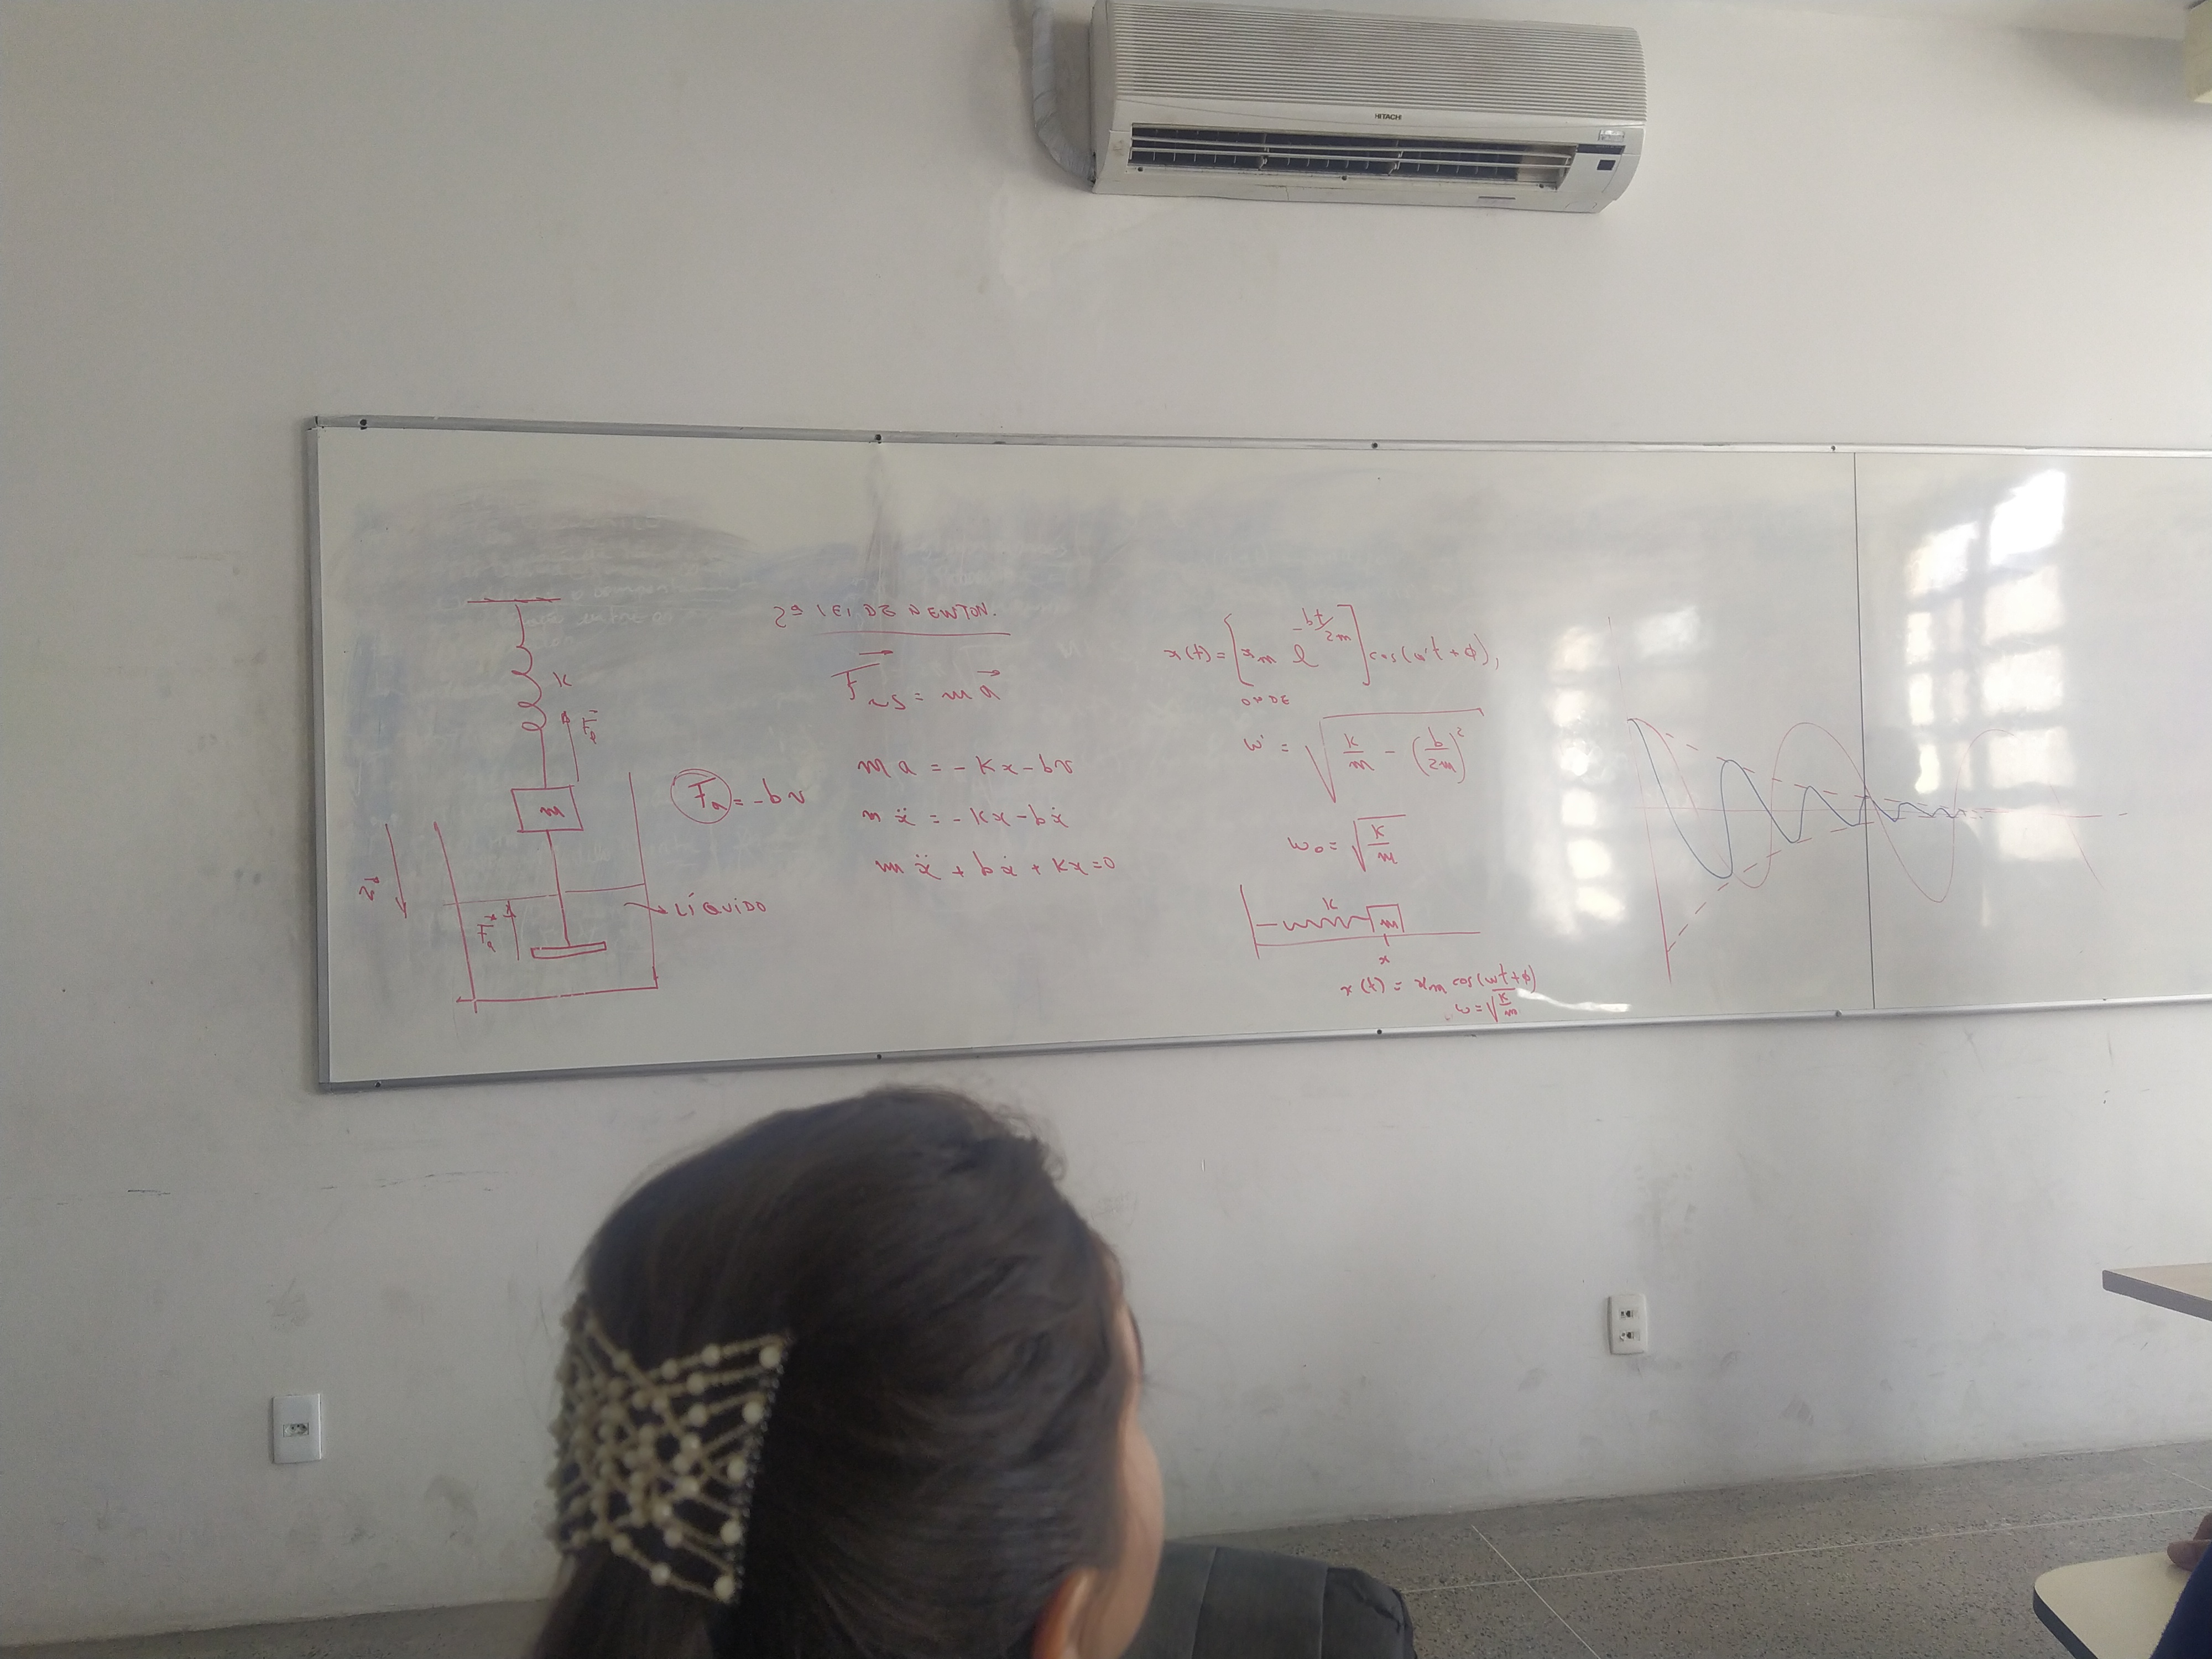 HITACHI
K
F⃗e
m
v⃗
F⃗a
LÍQUIDO
Fa = -bv
2ª LEI DE NEWTON.
F⃗RES = m a⃗
m a = -Kx - bv
m ẍ = -Kx - bẋ
m ẍ + bẋ + Kx = 0
x(t) = [xm e^(-bt/2m)] cos(ω't + φ),
ONDE
ω' = √(K/m - (b/2m)²)
ω₀ = √(K/m)
K
m
x
x(t) = xm cos(ωt + φ)
ω = √(K/m)